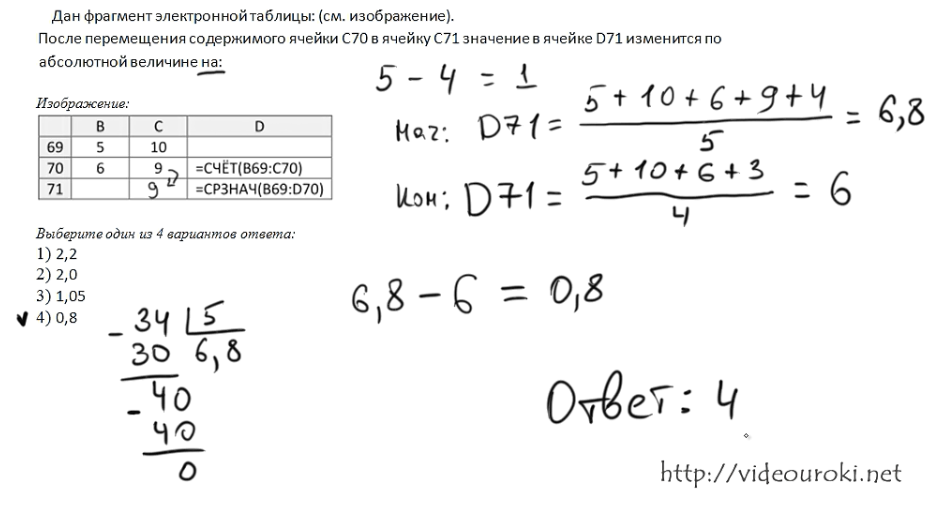 Дан фрагмент электронной таблицы: (см. изображение).
После перемещения содержимого ячейки C70 в ячейку C71 значение в ячейке D71 изменится по
абсолютной величине на:
5 - 4 = 1
Нач: D71 = (5 + 10 + 6 + 9 + 4) / 5 = 6,8
Кон: D71 = (5 + 10 + 6 + 3) / 4 = 6
Изображение:
B C D
69 5 10
70 6 9 =СЧЁТ(B69:C70)
71 9 =СРЗНАЧ(B69:D70)
Выберите один из 4 вариантов ответа:
1) 2,2
2) 2,0
3) 1,05
4) 0,8
6,8 - 6 = 0,8
- 34 5
30 6,8
- 40
40
0
Ответ: 4
http://videouroki.net